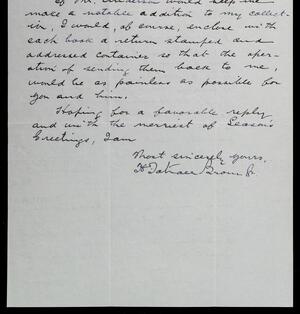 If Mr. Anderson would help me
make a notable addition to my collect-
ion, I would, of course, enclose with
each book a return stamped and
addressed container so that the oper-
ation of sending them back to me,
would be as painless as possible for
you and him.
Hoping for a favorable reply
and with the merriest of Season's
Greetings, I am
Most sincerely yours,
H. Brown Jr.